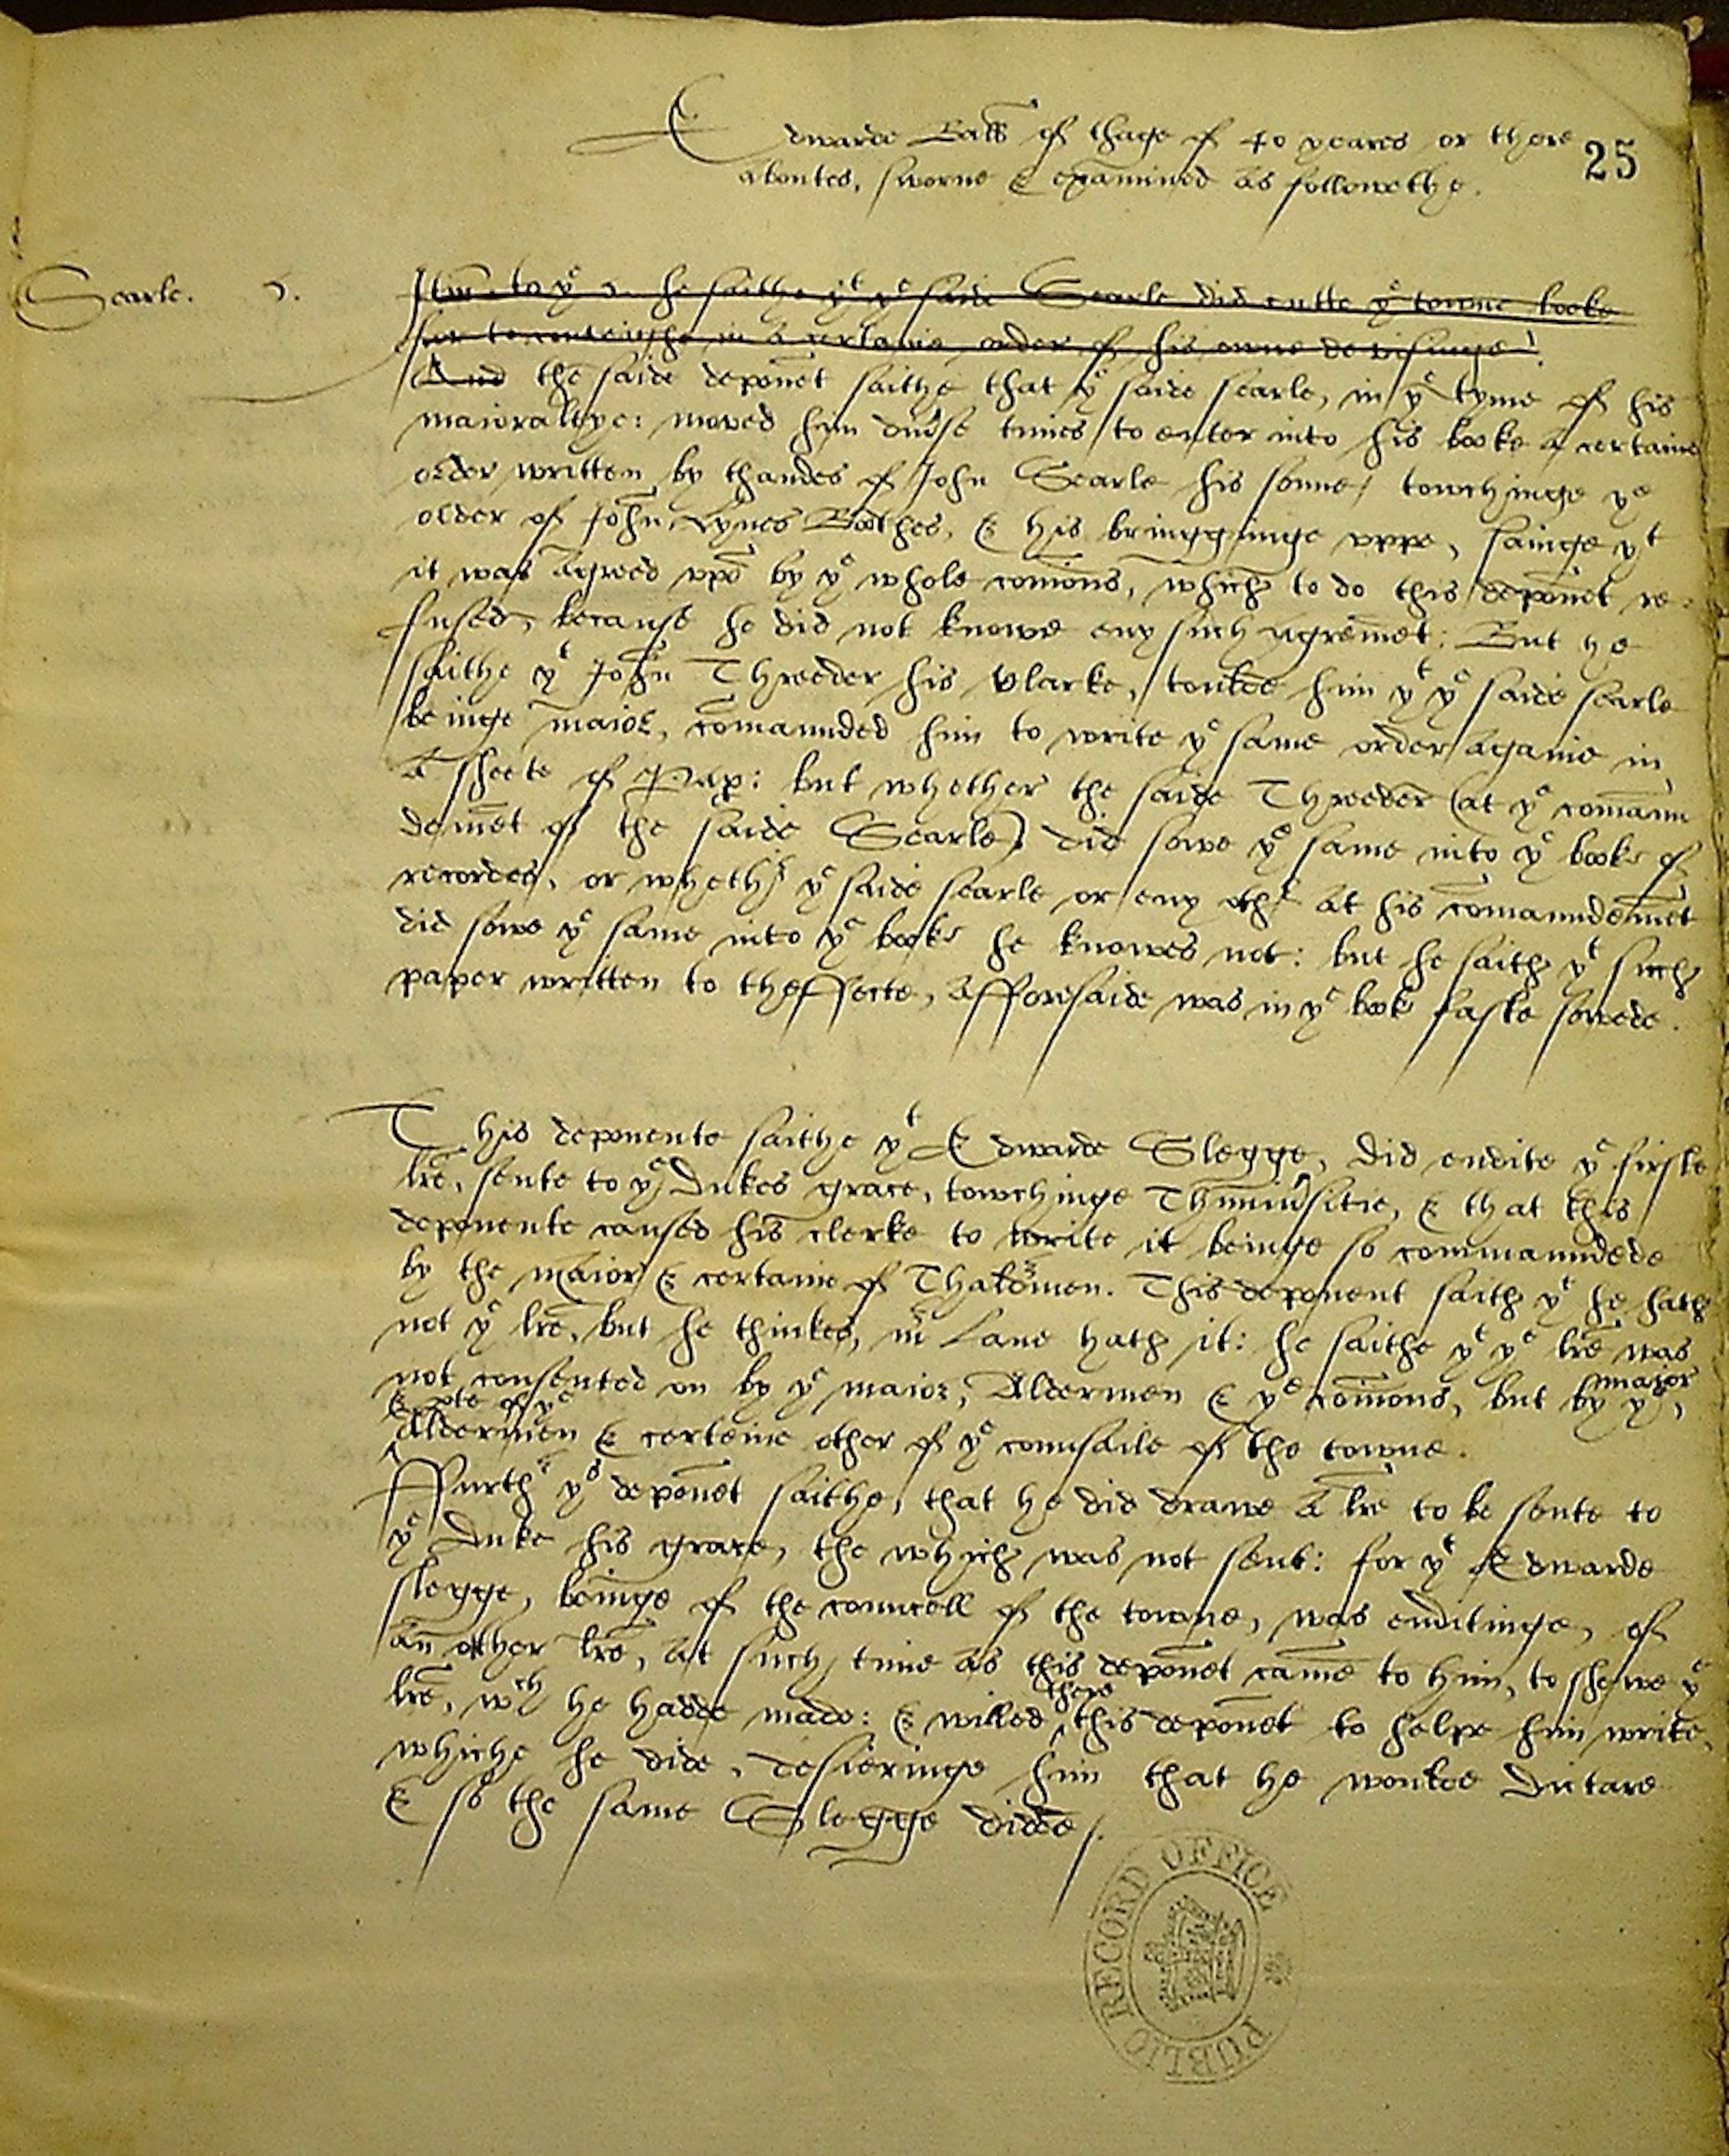 Edwarde Ball of thage of 40 yeares or there
25
aboutes, sworne & examined as followethe.
Searle. 2. Itm̄ to yᵉ 2. he saithe yᵗ yᵉ saide Searle did cutte yᵉ towne booke
in a certaine order of his owne devisinge
And the saide depon̄et saithe that yᵉ saide searle, in yᵉ tyme of his
maioraltye: moved him div̄se times to enter into his booke a certaine
order written by thandes of John Searle his sonne, towchinge yᵉ
older of John Lynes Boothes, & his bringginge uppe, sainge yᵗ
it was agreed upō by yᵉ whole com̄ons, which to do this depon̄et re-
fused, because he did not knowe eny such agrem̄et: But he
saithe yᵗ John Threeder his Clarke, toulde him yᵗ yᵉ saide searle
beinge maior, com̄aunded him to write yᵉ same order againe in
a sheete of Pap: but whether the saide Threeder (at yᵉ com̄aun
dem̄et of the saide Searle) did sowe yᵉ same into yᵉ booke of
recordes, or wheth̄ yᵉ saide searle or eny oth̄ at his com̄aundem̄et
did sowe yᵉ same into yᵉ booke he knowes not: but he saith yᵗ such
paper written to theffecte, afforesaide was in yᵉ booke faste sowede.
This deponente saithe yᵗ Edwarde Slegge, did endite yᵉ firste
lr̄e, sente to yᵉ Dukes grace, towchinge Thuniv̄sitie, & that this
deponente caused his clerke to write it beinge so commaundede
by the maior & certaine of Thaldōmen. This deponent saith yᵗ he hath
not yᵉ lr̄e, but he thinkes, mʳ Lane hath it: he saithe yᵗ yᵉ lr̄e was
not consented on by yᵉ maior, Aldermen & yᵉ com̄ons, but by yᵉ maior,
& pte of yᵉ
Aldermen & certeine other of yᵉ counsaile of the towne.
Ffurth̄ yˢ depon̄et saithe, that he did drawe a lr̄e to be sente to
yᵉ Duke his grace, the which was not sent: for yᵗ Edwarde
slegge, beinge of the councell of the towne, was enditinge, of
an other lr̄e, at such time as this depon̄et came to him, to shewe yᵉ
lr̄e, wᶜʰ he hadde made: & willed there this depon̄et to helpe him write,
whiche he dide, desieringe him that he woulde Dictare
& so the same Slegge didde.
PUBLIC RECORD OFFICE